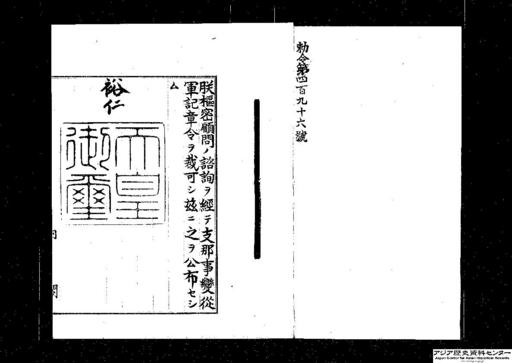 勅令第四百九十六號
朕樞密顧問ノ諮詢ヲ經テ支那事變從
軍記章令ヲ裁可シ茲ニ之ヲ公布セシ
ム
裕仁
天皇御璽
内
閣
アジア歴史資料センター
Japan Center for Asian Historical Records